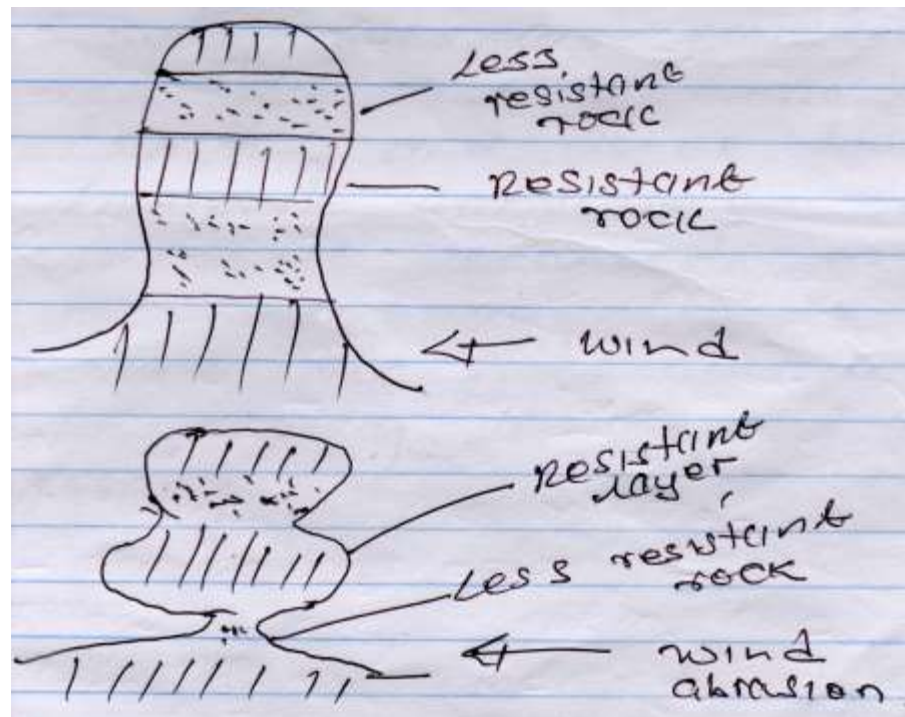 Less
resistant
rock
Resistant
rock
wind
Resistant
layer
Less resistant
rock
wind
abrasion